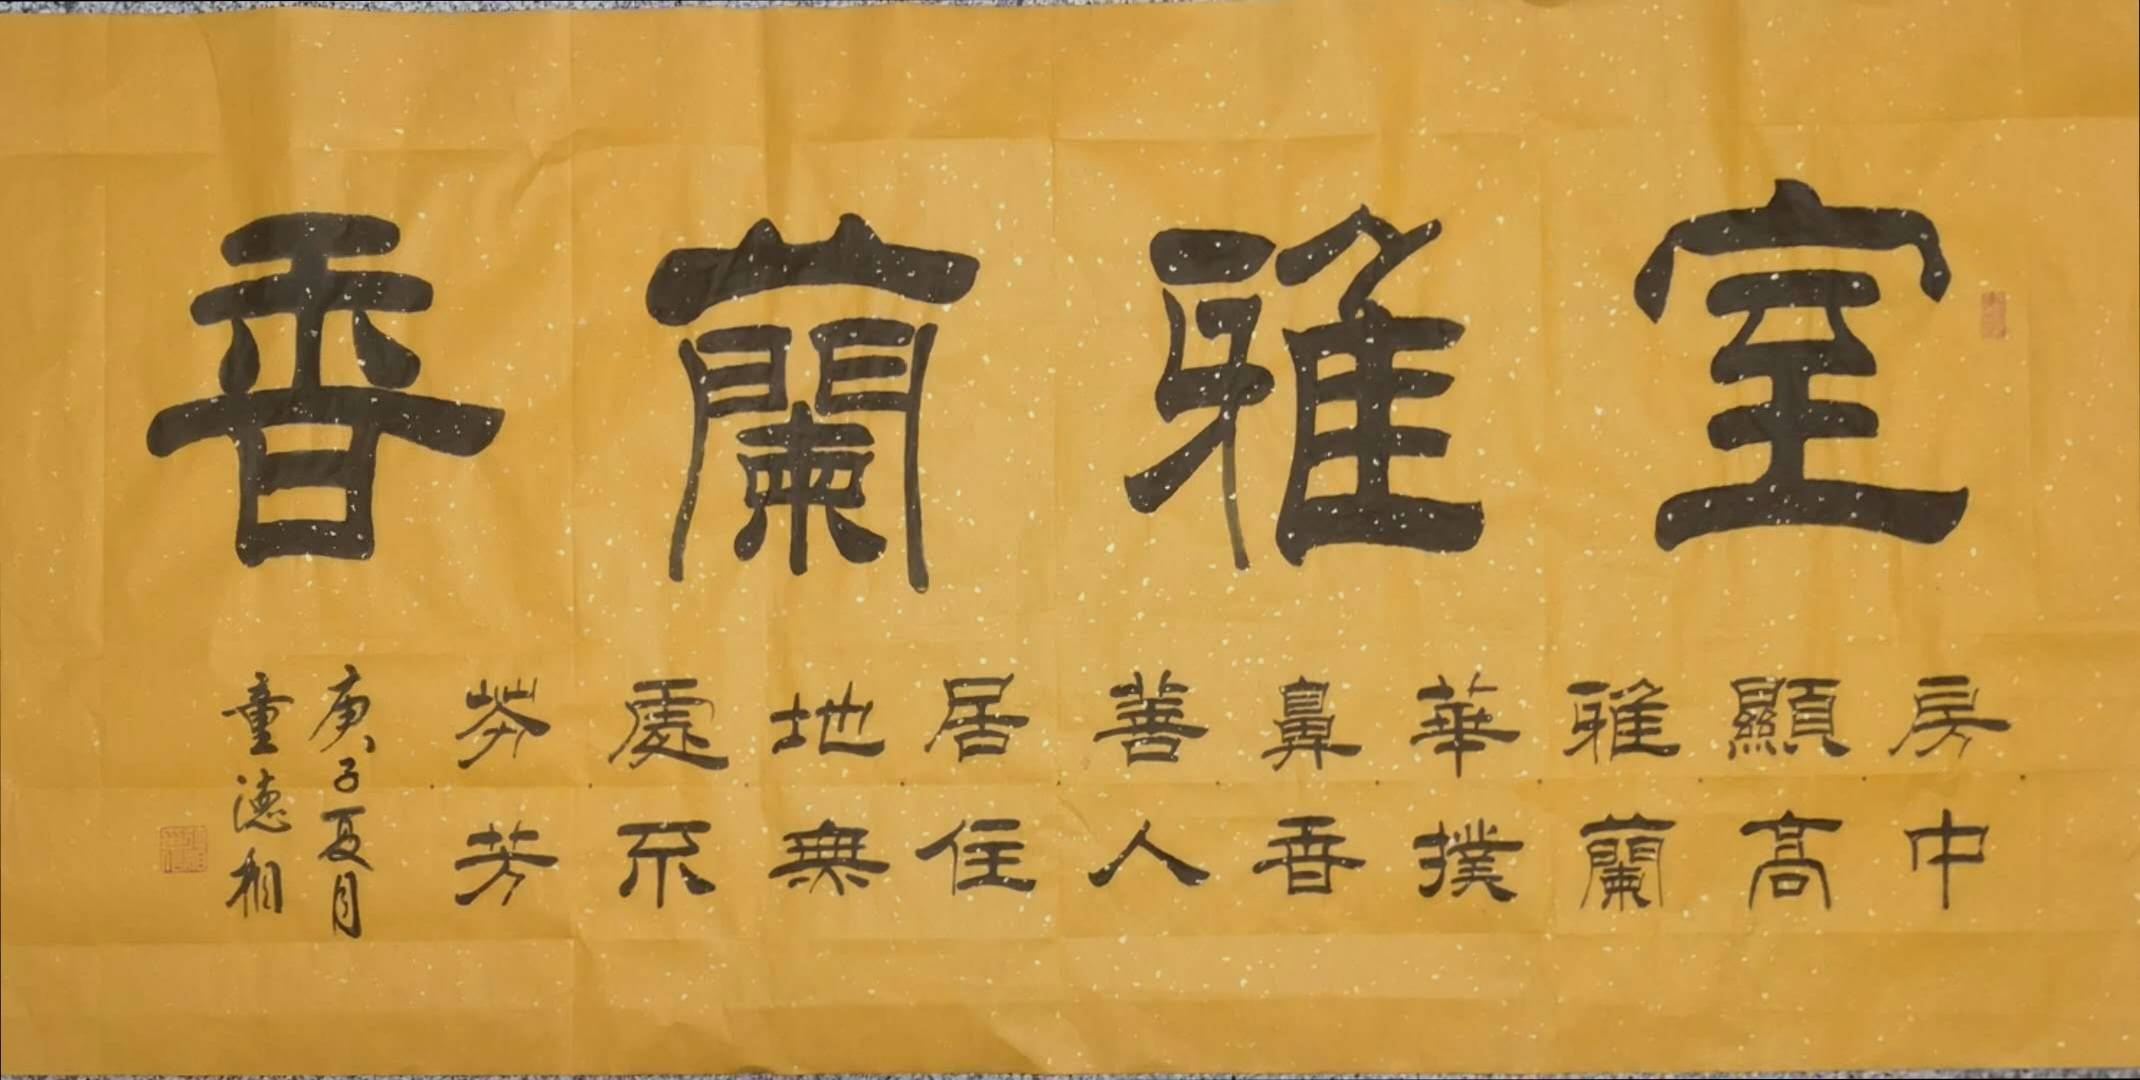 室雅蘭香
房中
顯高
雅蘭
華撲
鼻香
善人
居住
地無
處不
芬芳
庚子夏月
童德相